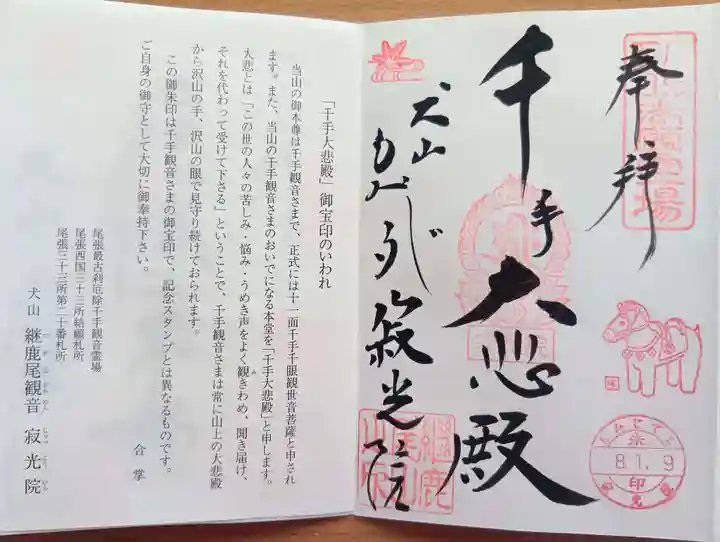 奉拝
千手大悲殿
犬山
もみじでら
寂光院
継鹿
もみじでら
朱
8.1.9
印
寂光院
「千手大悲殿」御宝印のいわれ
当山の御本尊は千手観音さまで、正式には十一面千手千眼観世音菩薩と申され
ます。また、当山の千手観音さまのおいでになる本堂を「千手大悲殿」と申します。
大悲とは「この世の人々の苦しみ・悩み・うめき声をよく観きわめ、聞き届け、
それを代わって受けて下さる」ということで、千手観音さまは常に山上の大悲殿
から沢山の手、沢山の眼で見守り続けておられます。
この御朱印は千手観音さまの御宝印で、記念スタンプとは異なるものです。
ご自身の御守として大切に御奉持下さい。
合掌
尾張最古刹厄除千手観音霊場
尾張西国三十三所結願札所
尾張三十三所第二十番札所
犬山 継鹿尾観音 寂光院